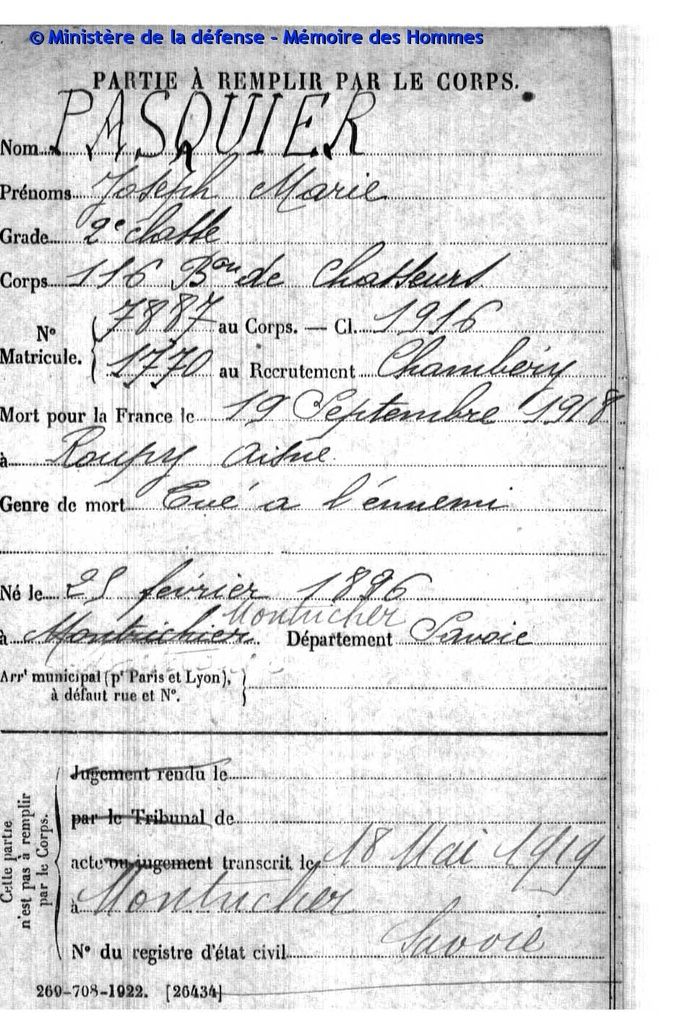 © Ministère de la défense - Mémoire des Hommes
PARTIE À REMPLIR PAR LE CORPS.
Nom PASQUIER
Prénoms Joseph Marie
Grade 2e classe
Corps 116 Bon de Chasseurs
N° Matricule. { 7887 au Corps. — Cl. 1916
1770 au Recrutement Chambéry
Mort pour la France le 19 Septembre 1918
à Roupy Aisne
Genre de mort Tué a l'énnemi
Né le 25 février 1896
Montricher
à Montrichier Département Savoie
Arrt municipal (pr Paris et Lyon), }
à défaut rue et N°.
Cette partie
n'est pas à remplir
par le Corps.
Jugement rendu le
par le Tribunal de
acte ou jugement transcrit le 18 Mai 1919
à Montricher
Savoie
N° du registre d'état civil
269-708-1922. [26434]